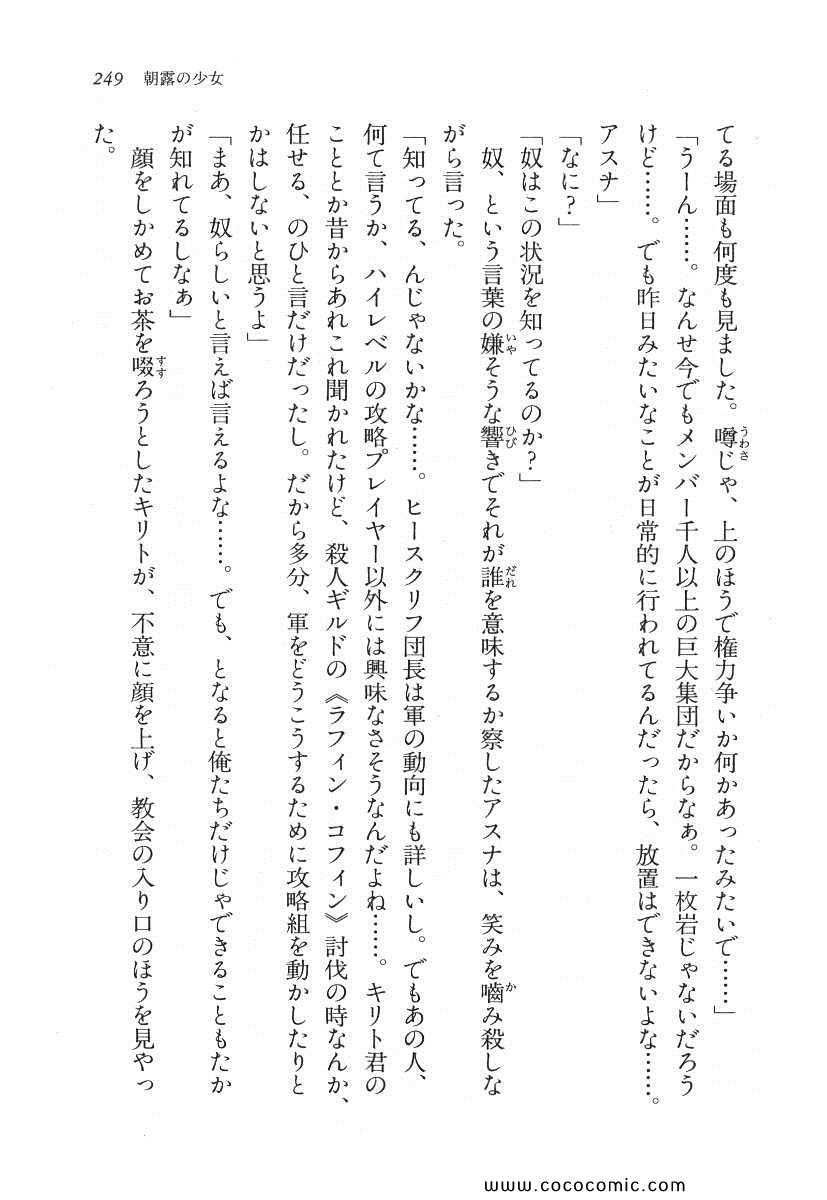 249 朝露の少女
てる場面も何度も見ました。噂じゃ、上のほうで権力争いか何かあったみたいで……」
「うーん……。なんせ今でもメンバー千人以上の巨大集団だからなぁ。一枚岩じゃないだろう
けど……。でも昨日みたいなことが日常的に行われてるんだったら、放置はできないよな……。
アスナ」
「なに?」
「奴はこの状況を知ってるのか?」
奴、という言葉の嫌そうな響きでそれが誰を意味するか察したアスナは、笑みを嚙み殺しな
がら言った。
「知ってる、んじゃないかな……。ヒースクリフ団長は軍の動向にも詳しいし。でもあの人、
何て言うか、ハイレベルの攻略プレイヤー以外には興味なさそうなんだよね……。キリト君の
こととか昔からあれこれ聞かれたけど、殺人ギルドの《ラフィン・コフィン》討伐の時なんか、
任せる、のひと言だけだったし。だから多分、軍をどうこうするために攻略組を動かしたりと
かはしないと思うよ」
「まあ、奴らしいと言えば言えるよな……。でも、となると俺たちだけじゃできることもたか
が知れてるしなぁ」
顔をしかめてお茶を啜ろうとしたキリトが、不意に顔を上げ、教会の入り口のほうを見やっ
た。
www.cococomic.com